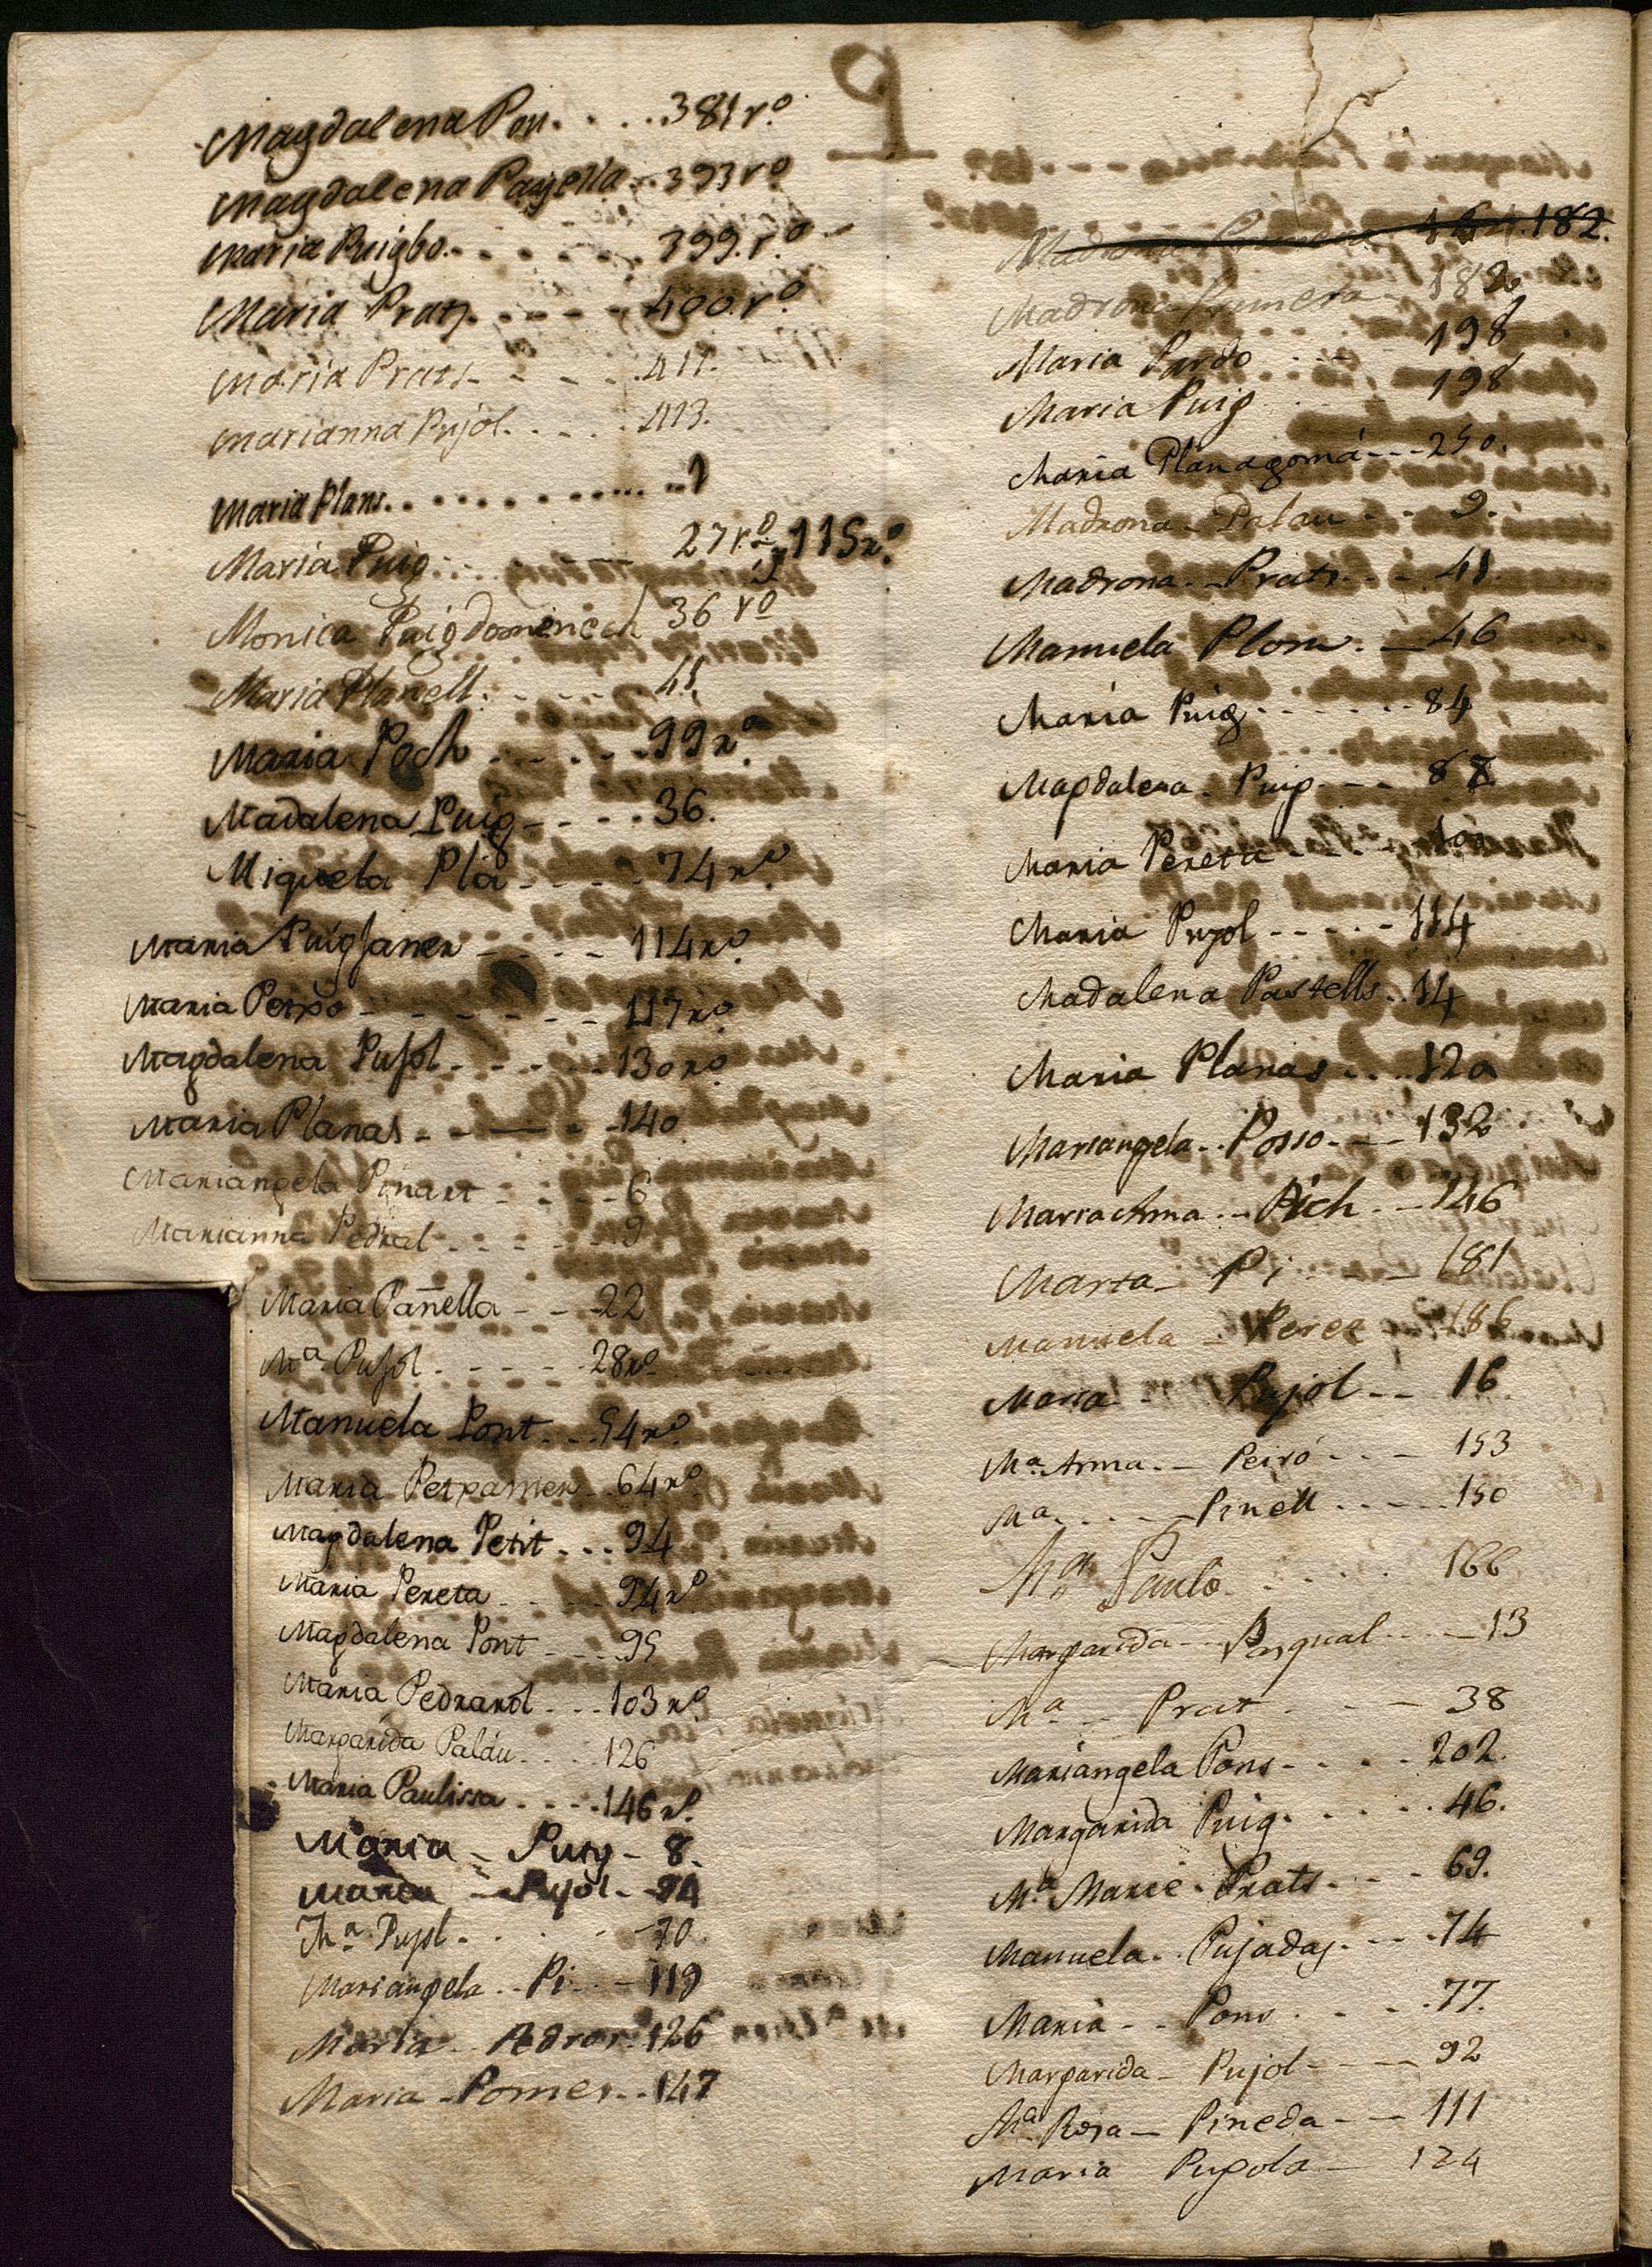 P
Magdalena Pon. . . . . 381 rº
Magdalena Parjella . . 393 rº
Maria Puigbo. . . . . . . 399. rº
Maria Prats. . . . . . 400. rº
Maria Prats. . . . . 411.
Marianna Pujol. . . . . 413.
Maria Plans. . . . . . . . . . . . 1
Maria Puig. . . . 27 rº y 115 rº
Monica Puigdomenech 36 rº
Maria Planell. . . . . 41.
Maria Poch . . . . . . 99 rº
Madalena Puig - - - - 36.
Miquela Pla - . . . . 74 rº
Maria Puigjaner - - - - 114 rº
Maria Peixo - - - - - - - 117 rº
Magdalena Pujol - . - . - . - 130 rº
Maria Planas - - — - - 140
Mariangela Pinart - - - - - 6
Marianna Pedral . . - . - - 9
Maria Pañella - - - 22
Mª Pujol . - - - - - 28 rº
Manuela Pont . . . 54 rº
Maria 64 rº
Magdalena Petit . . . 94
Maria Pereta . . . . 94 rº
Magdalena Pont . . . 95
Maria Pedrarol . . . 103 rº
Margarida Paláu . . . . 126
Maria Paulissa . . . . 146 rº
Maria - Puig - 8.
Maria - Pujol - 24
Mª Pujol . . . . 70
Mariangela . . Pi . . — 119
Maria . . 126
Maria - Pomes . . 147
182.
Madrona 182
Maria Pardo . . . 198
Maria Puig . . 198
Maria Planagomá - - - 250.
Madrona - Palau - - - 9.
Madrona . - Prats . - - 41
Manuela Plom . — 46
Maria Puig . . . . . . . 84
Magdalena - Puig . - - - 88
Maria Pereta - - - -
Maria Pujol - - - - - 114
Madalena Pastells . . 14
Maria Planas . . . . 120
Mariangela . . Posso . - — 132
Maria Anna . . - Pich . - - 146
Marta - Pi - - - - 181
Manuela — Perez - 186
Maria - Pujol - - 16
Mª Anna . — Peiró . . . - 153
Mª . . . . — Pinell . . . - - 150
Mª Paulo . . . . . 166
Margarida - - Pasqual . . . - — 13
Mª - - Prat . . . - — 38
Mariangela Pons - . . . . 202.
Margarida Puig . . . . . . 46.
Mª Marie . Prats . . . - 69.
Manuela . . Pujadas . - - - . 74
Maria - - Pons . . . - . 77.
Margarida - Pujol - - — 92
Mª Rosa — Pineda - - — 111
Maria Pugola — 124